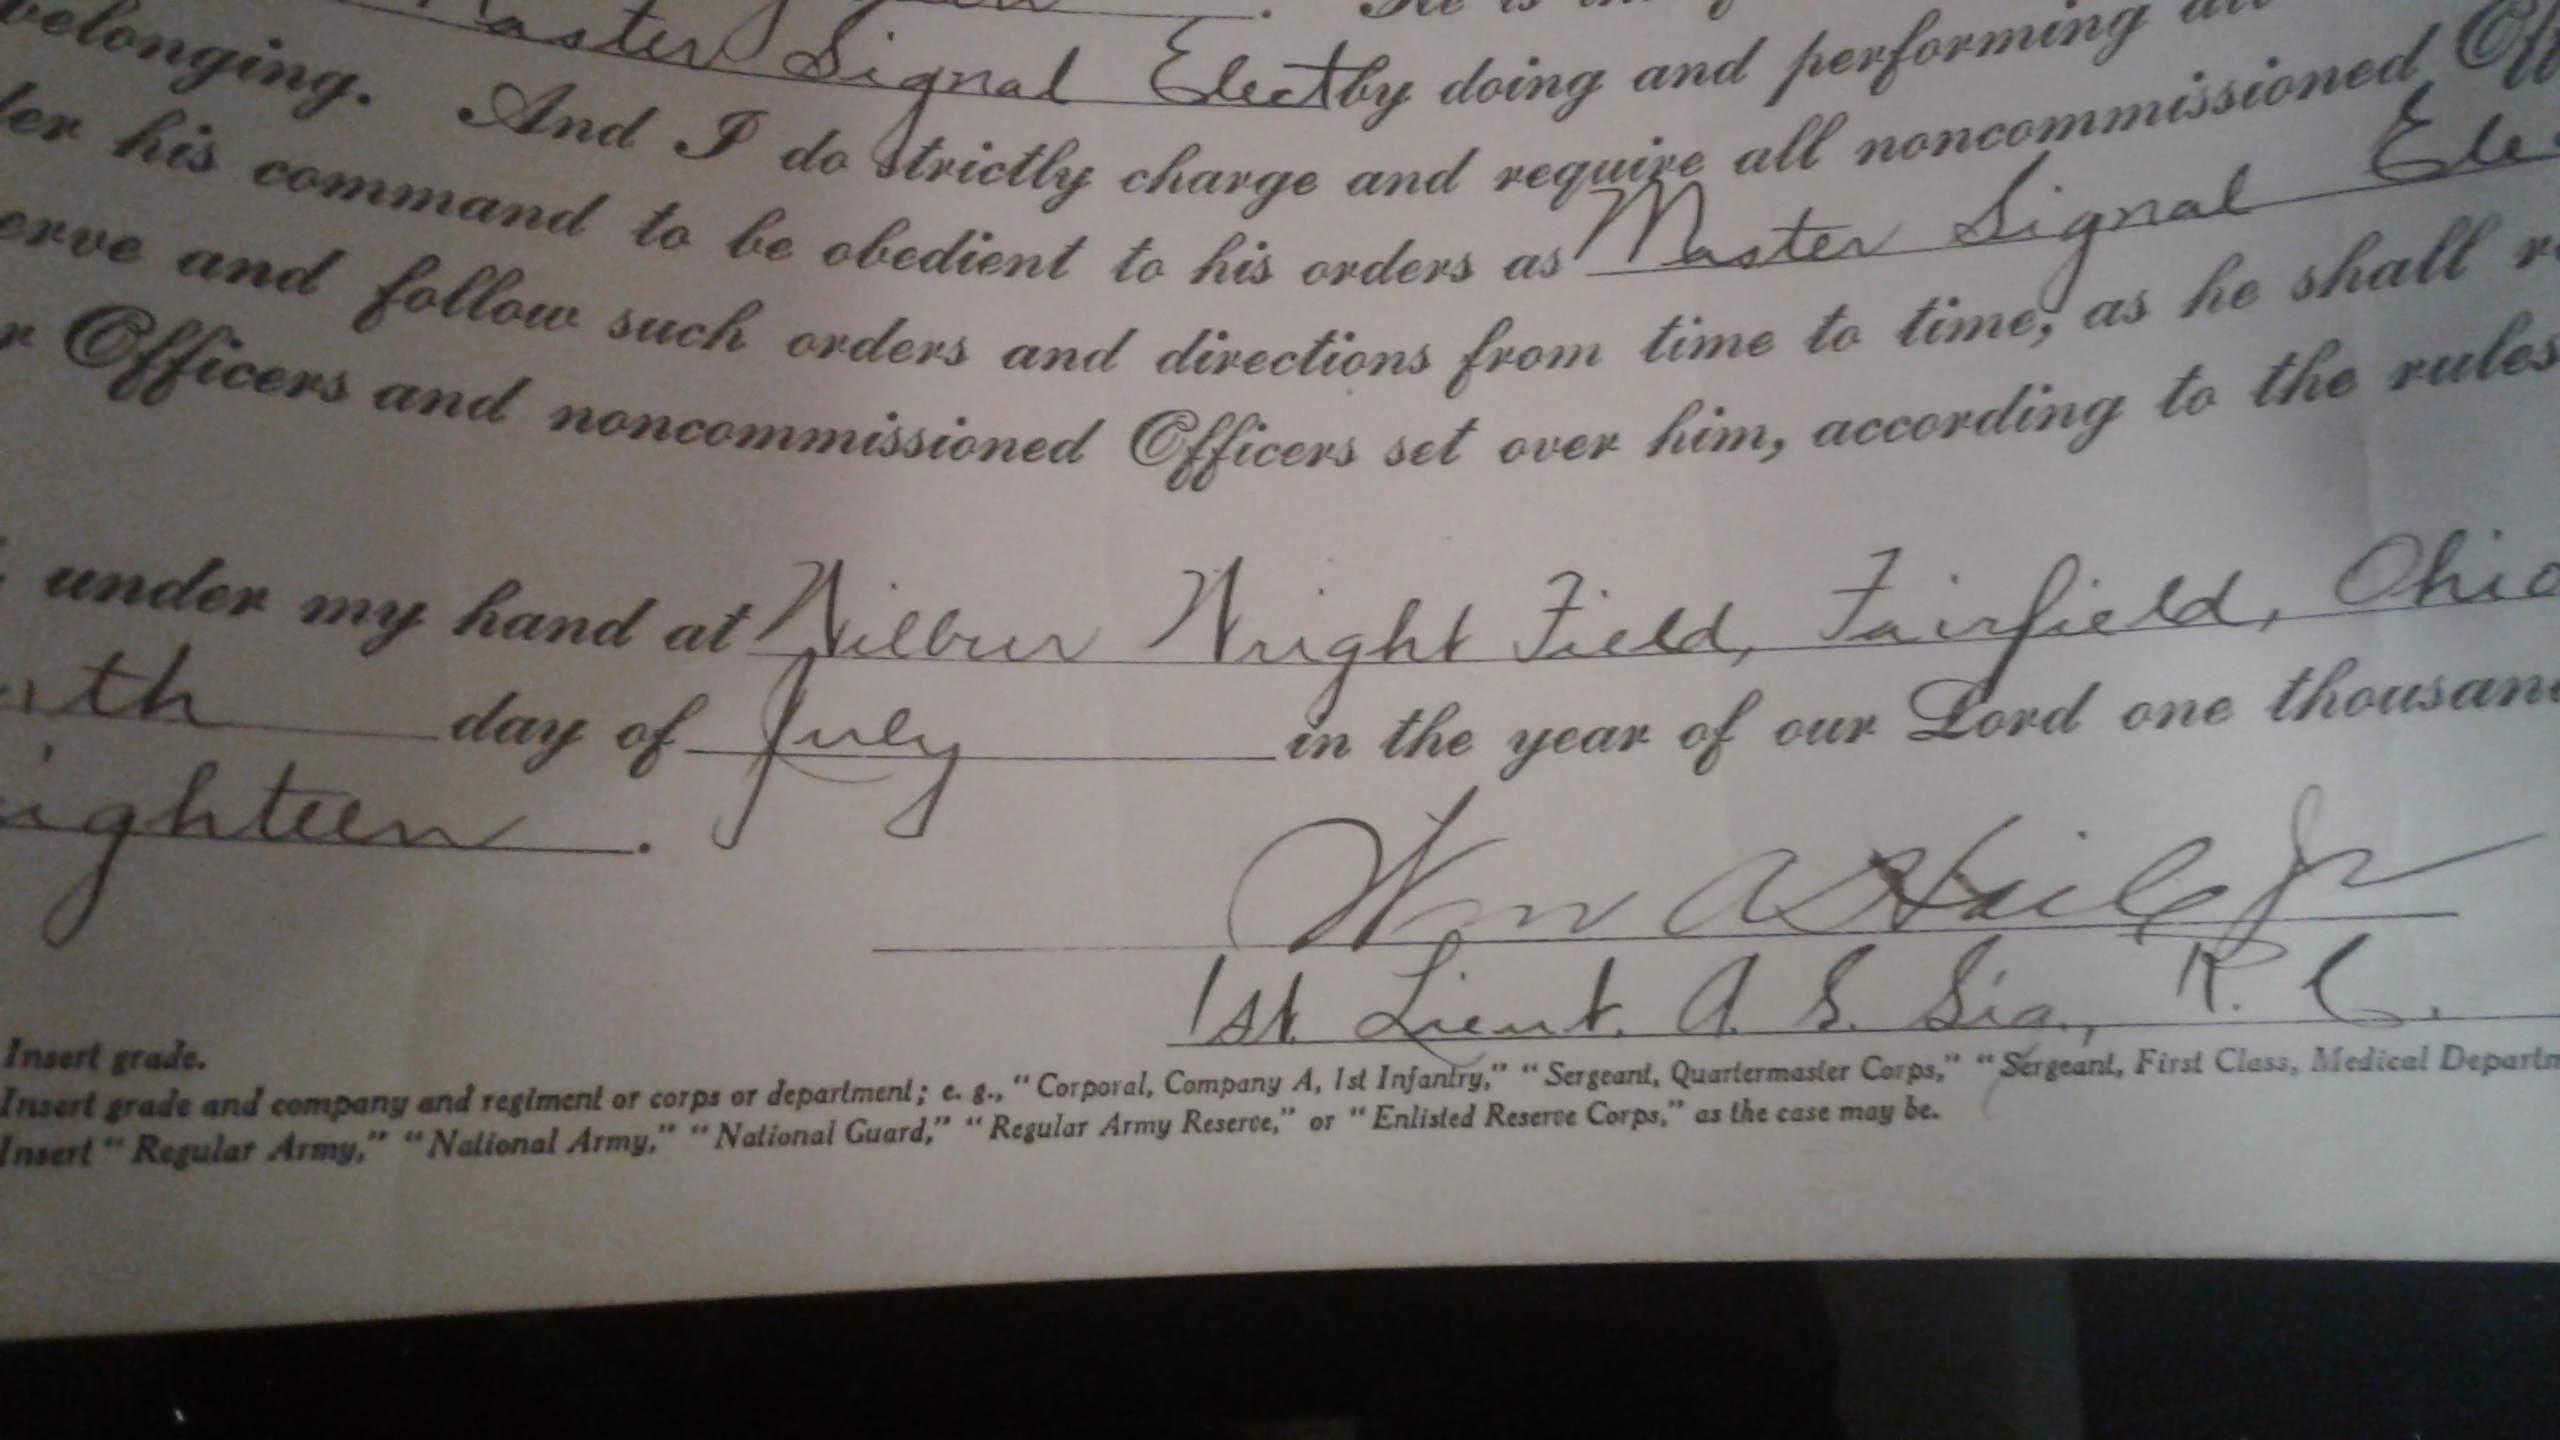 Master Signal Elect by doing and performing
belonging. And I do strictly charge and require all noncommissioned
his command to be obedient to his orders as Master Signal Ele
erve and follow such orders and directions from time to time, as he shall
Officers and noncommissioned Officers set over him, according to the rules
under my hand at Wilbur Wright Field, Fairfield, Ohio
th day of July in the year of our Lord one thousan
ighteen.
Wm A Haile Jr
1st. Lieut. A. S. Sig, R. C.
Insert grade.
Insert grade and company and regiment or corps or department; e. g., "Corporal, Company A, 1st Infantry," "Sergeant, Quartermaster Corps," "Sergeant, First Class, Medical Departm
Insert "Regular Army," "National Army," "National Guard," "Regular Army Reserve," or "Enlisted Reserve Corps," as the case may be.